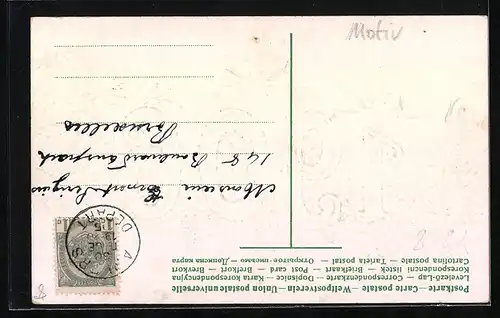 Motiv
Postkarte — Carte postale — Weltpostverein — Union postale universelle
Levelező-Lap — Correspondenzkarte — Dopisnice — Karta korespondencyjna
Korespondenční listek — Briefkaart — Post card — Brefkort — Brevkort
Cartolina postale — Tarjeta postal — Открытое письмо — Дописна карта
Monsieur
148 Boulevard Anspach
Bruxelles
DEPART